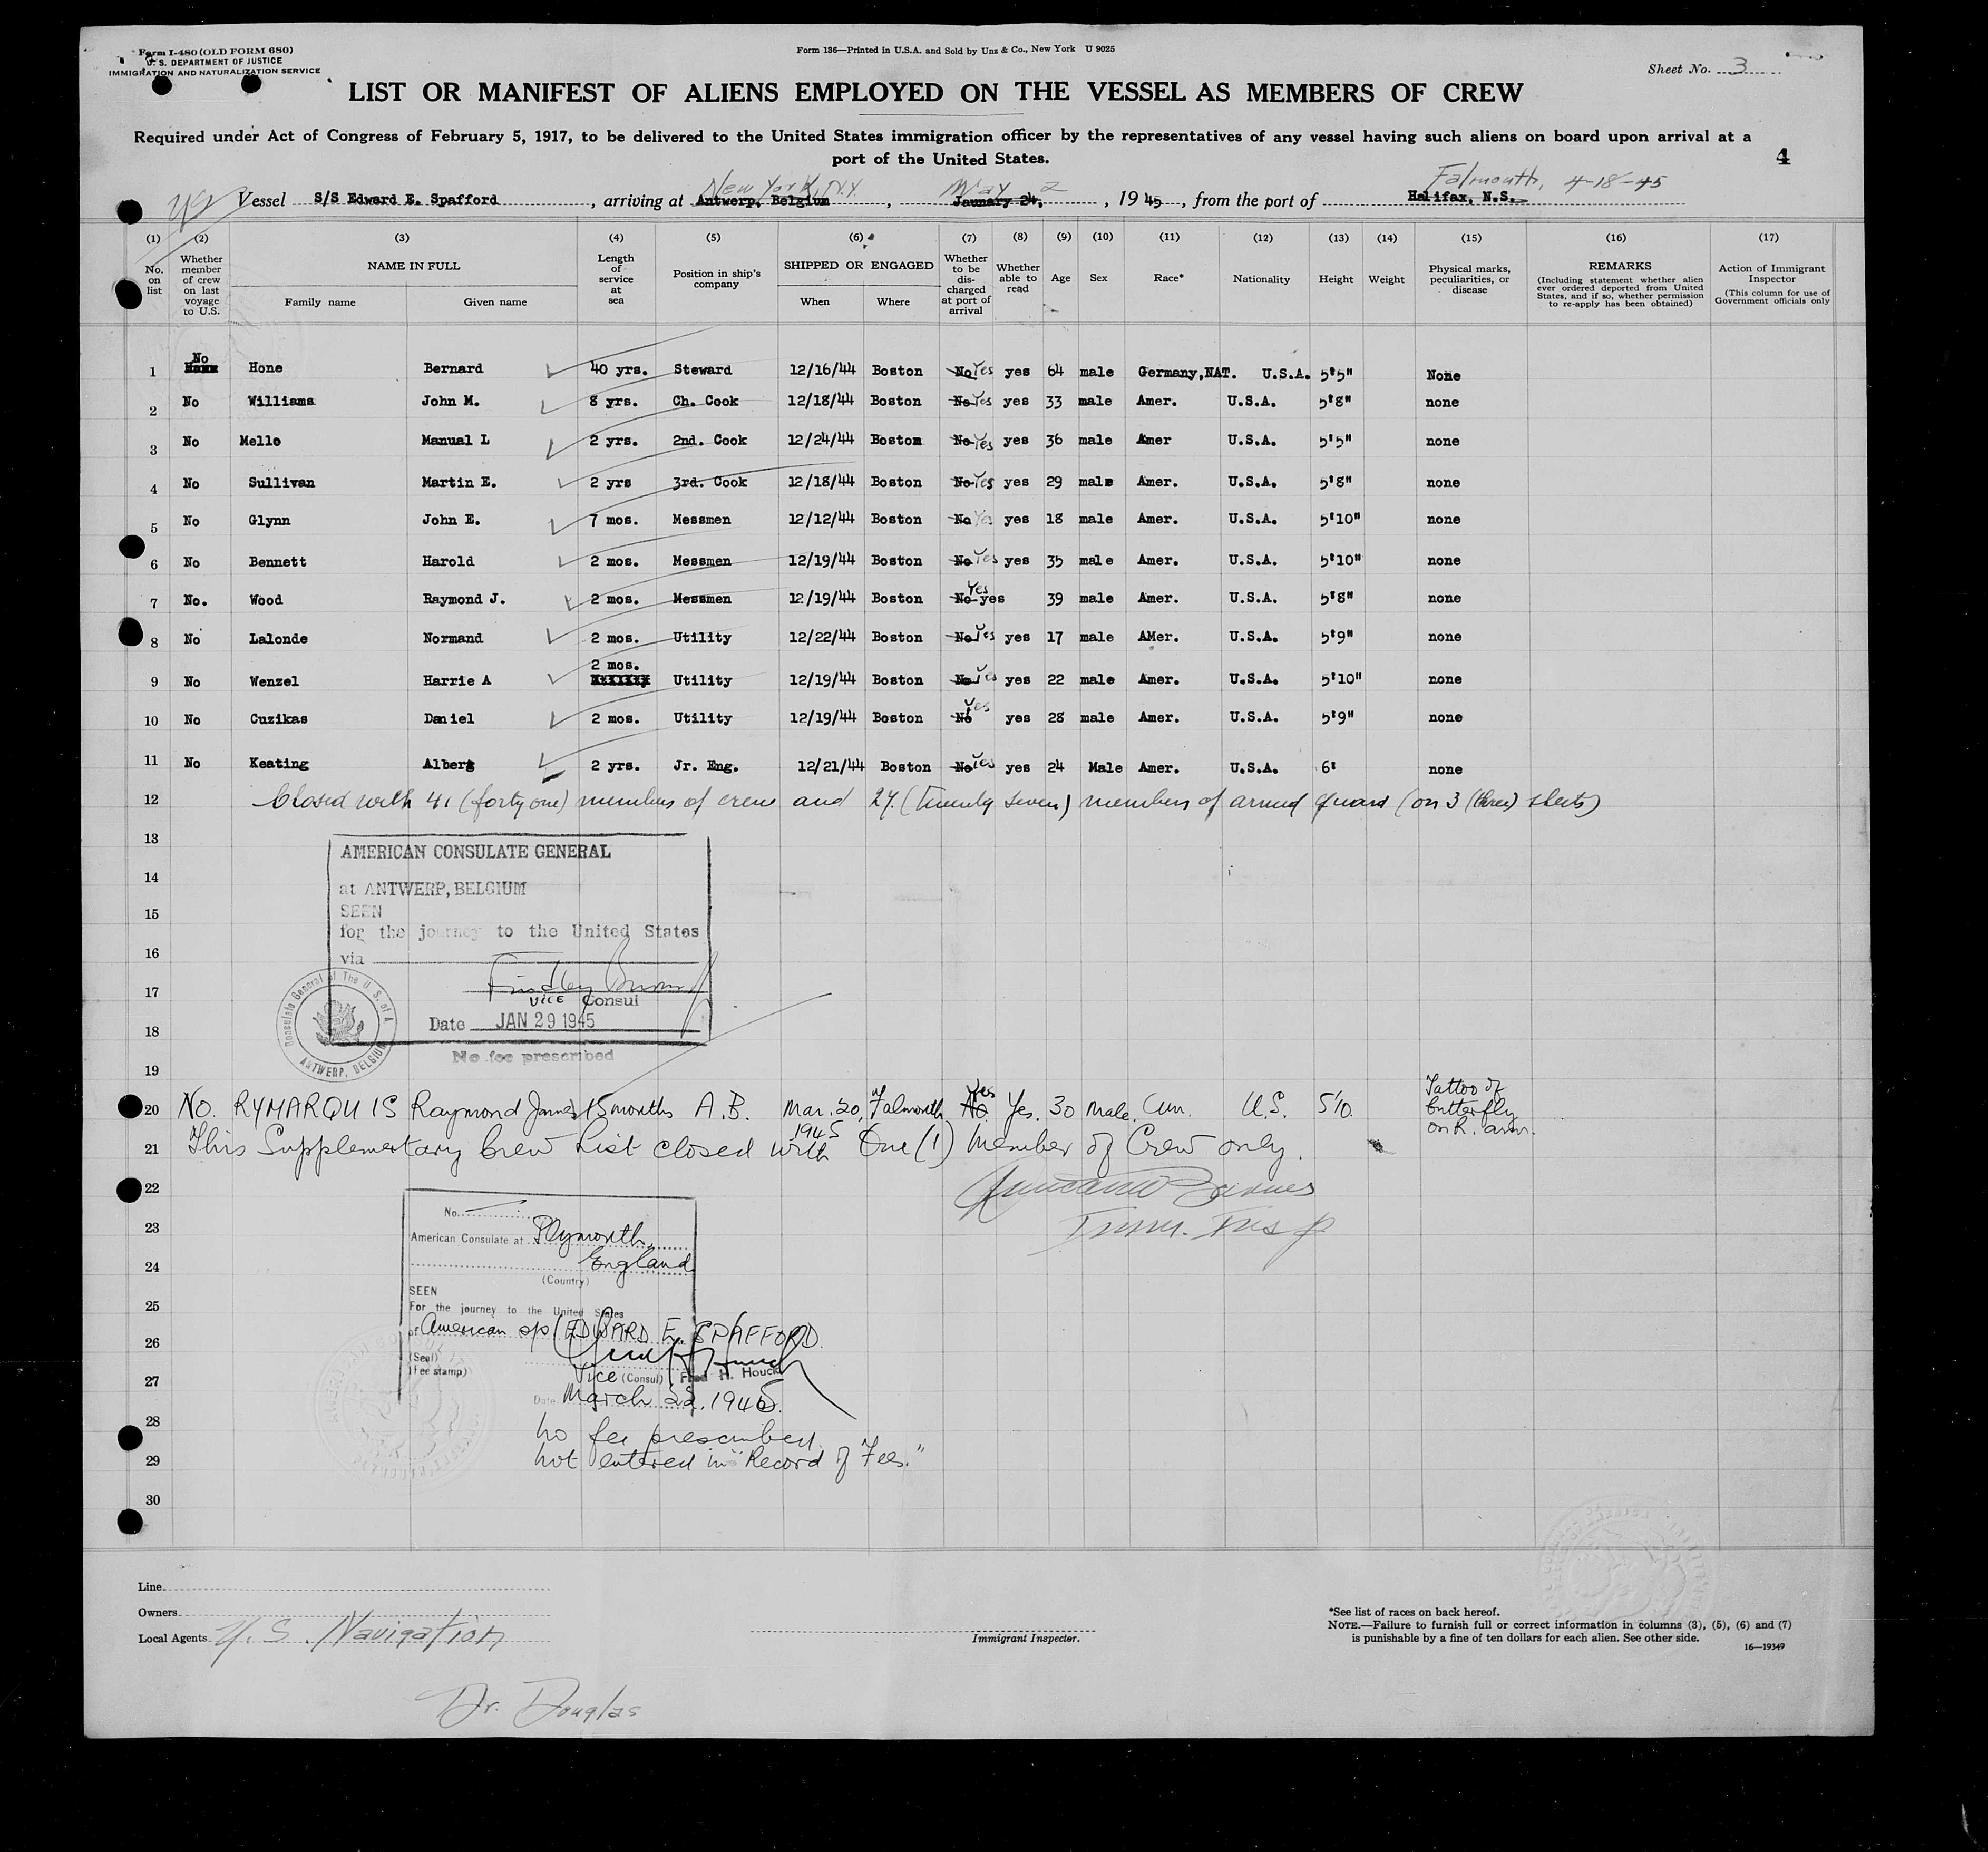 Form I-480 (OLD FORM 680)
U. S. DEPARTMENT OF JUSTICE
IMMIGRATION AND NATURALIZATION SERVICE
Form 136—Printed in U.S.A. and Sold by Unz & Co., New York U 9025
Sheet No. 3
LIST OR MANIFEST OF ALIENS EMPLOYED ON THE VESSEL AS MEMBERS OF CREW
Required under Act of Congress of February 5, 1917, to be delivered to the United States immigration officer by the representatives of any vessel having such aliens on board upon arrival at a
port of the United States.
4
New York, N.Y. May 2 Falmouth, 4-18-45
Vessel S/S Edward E. Spafford, arriving at Antwerp, Belgium, January 24, 1945, from the port of Halifax, N.S.
(1) (2) (3) (4) (5) (6) (7) (8) (9) (10) (11) (12) (13) (14) (15) (16) (17)
No. on list
Whether member of crew on last voyage to U.S.
NAME IN FULL
Family name Given name
Length of service at sea
Position in ship's company
SHIPPED OR ENGAGED
When Where
Whether to be discharged at port of arrival
Whether able to read
Age Sex Race* Nationality Height Weight
Physical marks, peculiarities, or disease
REMARKS
(Including statement whether alien ever ordered deported from United States, and if so, whether permission to re-apply has been obtained)
Action of Immigrant Inspector
(This column for use of Government officials only
1 No Hone Bernard 40 yrs. Steward 12/16/44 Boston No Yes yes 64 male Germany,NAT. U.S.A. 5'5" None
2 No Williams John M. 8 yrs. Ch. Cook 12/18/44 Boston No Yes yes 33 male Amer. U.S.A. 5'8" none
3 No Mello Manual L 2 yrs. 2nd. Cook 12/24/44 Boston No Yes yes 36 male Amer U.S.A. 5'5" none
4 No Sullivan Martin E. 2 yrs 3rd. Cook 12/18/44 Boston No Yes yes 29 male Amer. U.S.A. 5'8" none
5 No Glynn John E. 7 mos. Messmen 12/12/44 Boston No Yes yes 18 male Amer. U.S.A. 5'10" none
6 No Bennett Harold 2 mos. Messmen 12/19/44 Boston No Yes yes 35 male Amer. U.S.A. 5'10" none
7 No. Wood Raymond J. 2 mos. Messmen 12/19/44 Boston No Yes yes 39 male Amer. U.S.A. 5'8" none
8 No Lalonde Normand 2 mos. Utility 12/22/44 Boston No Yes yes 17 male AMer. U.S.A. 5'9" none
9 No Wenzel Harrie A 2 mos. Utility 12/19/44 Boston No Yes yes 22 male Amer. U.S.A. 5'10" none
10 No Cuzikas Daniel 2 mos. Utility 12/19/44 Boston No Yes yes 28 male Amer. U.S.A. 5'9" none
11 No Keating Albert 2 yrs. Jr. Eng. 12/21/44 Boston No Yes yes 24 Male Amer. U.S.A. 6' none
12 Closed with 41 (forty one) members of crew and 27 (twenty seven) members of armed guard (on 3 (three) sheets)
13
AMERICAN CONSULATE GENERAL
14
at ANTWERP, BELGIUM
15
SEEN
for the journey to the United States
16
via
17
Vice Consul
18
Date JAN 29 1945
Consulate General of The U. S. of A
ANTWERP, BELGIUM
No fee prescribed
19
20 No. RYMARQUIS Raymond James 15 months A.B. Mar. 20, 1945 Falmouth No Yes Yes. 30 Male. Am. U.S. 5'10. Tattoo of butterfly on R. arm.
21 This Supplementary Crew List closed with One (1) Member of Crew only.
22
Imm. Insp
23
No.
American Consulate at Plymouth,
24
England
(Country)
25
SEEN
For the journey to the United States
26
of American s/s EDWARD E. SPAFFORD
(Seal)
(Fee stamp)
27
Vice (Consul) Fred H. Houck
Date March 22, 1945.
28
no fee prescribed
29
not entered in "Record of Fees."
30
Line
Owners
Local Agents U. S. Navigation
Immigrant Inspector.
*See list of races on back hereof.
NOTE.—Failure to furnish full or correct information in columns (3), (5), (6) and (7)
is punishable by a fine of ten dollars for each alien. See other side.
16—19349
Dr. Douglas